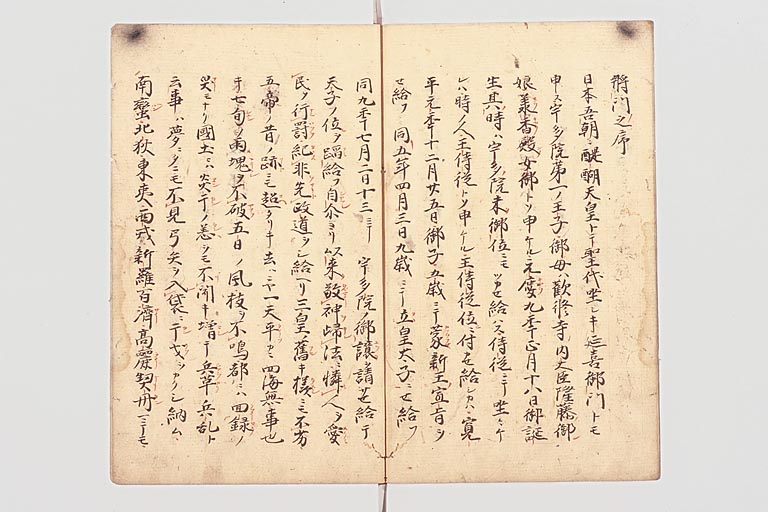 將門之序
日本吾朝醍醐天皇トテ聖代坐シキ延喜御門トモ
申ス宇多院第一ノ王子御母ハ勧修寺内大臣隆藤御
娘 香殿女御トソ申ケル元慶九年正月十八日御誕
生其時ハ宇多院未御位ニモツカせ給ハス侍従ニテ坐シケ
レハ時ノ人王侍従トソ申ケル王侍従位ニ付せ給シカハ寛
平元年十二月廿五日御子五歳ニテ蒙新王宣旨ヲ
せ給フ同五年四月三日九歳ニテ立皇太子ニせ給フ
同九年七月二日十三ニテ宇多院ノ御譲請せ給テ
天子ノ位ヲ蹈給フ自尓ヨリ以来敬神帰法ニ憐人ヲ愛
民ヲ行罰紀非先政道ヲシ給ヘリ三皇ノ舊キ様ニモ不劣
五帝ノ昔ノ跡ニモ超タリキ去ハニヤ一天平カニ四海無事也
キ七旬ノ雨塊ヲ不破五日ノ風枝ヲ不鳴都ニハ回録ノ
災ニナリ國土ニハ炎干ノ恙シモ不聞キ増テ兵革兵乱ト
云事ハ夢ミタニモ不見弓矢ヲ入袋ニ干戈ヲハタシ納ム
南蛮北狄東夷西戎新羅百済高麗契丹ニテモ